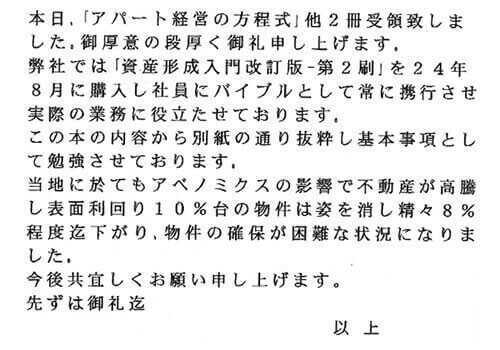 本日、「アパート経営の方程式」他２冊受領致しま
した。御厚意の段厚く御礼申し上げます。
弊社では「資産形成入門改訂版-第２刷」を２４年
８月に購入し社員にバイブルとして常に携行させ
実際の業務に役立たせております。
この本の内容から別紙の通り抜粋し基本事項とし
て勉強させております。
当地に於てもアベノミクスの影響で不動産が高騰
し表面利回り１０％台の物件は姿を消し精々８％
程度迄下がり、物件の確保が困難な状況になりま
した。
今後共宜しくお願い申し上げます。
先ずは御礼迄
以上